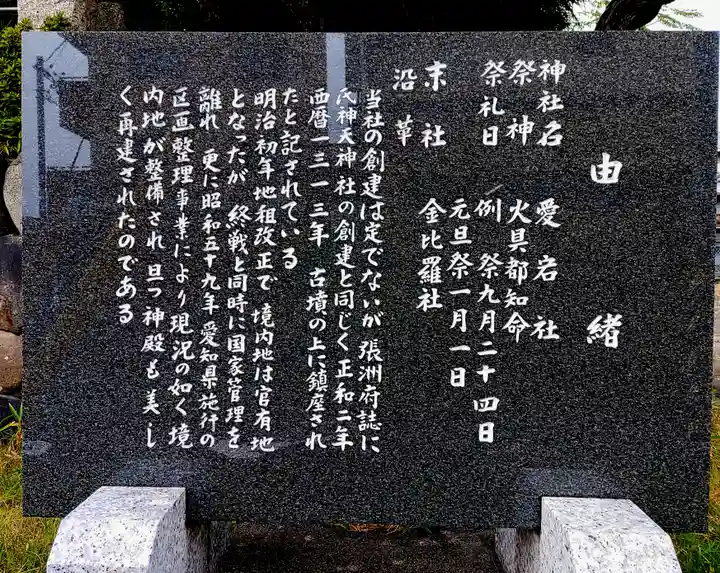 由緒
神社名 愛宕社
祭神 火具都知命
祭礼日 例祭九月二十四日
元旦祭一月一日
末社 金比羅社
沿革
当社の創建は定でないが 張洲府誌に
氏神天神社の創建と同じく正和二年
西暦一三一三年 古墳の上に鎮座され
たと記されている
明治初年地租改正で 境内地は官有地
となったが 終戦と同時に国家管理を
離れ 更に昭和五十九年 愛知県施行の
区画整理事業により現況の如く境
内地が整備され 且つ神殿も美し
く再建されたのである